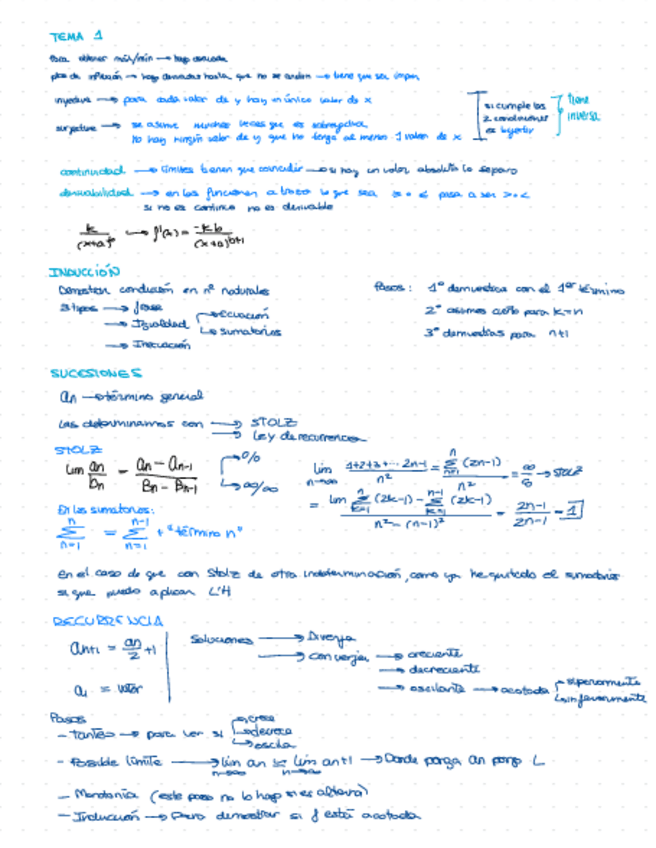 TEMA 1
Para obtener máx/mín → hago derivada
ptos de inflexión → hago derivadas hasta que no se anulen → tiene que ser impar
inyectiva → para cada valor de y hay un único valor de x
suprayectiva → se asume muchas veces que es sobreyectiva
No hay ningún valor de y que no tenga al menos 1 valor de x
si cumple las 2 condiciones es biyectiv
tiene inversa
continuidad → límites tienen que coincidir → si hay un valor absoluto lo separo
derivabilidad → en las funciones a trozos lo que sea ≥ o ≤ pasa a ser > o <
si no es continua no es derivable
k/(x+a)^b → f'(x) = -kb/(x+a)^(b+1)
INDUCCIÓN
Demostrar condición en nº naturales
3 tipos → frase
→ Igualdad → ecuación
→ sumatorios
→ Inecuación
Pasos: 1º demuestra con el 1er término
2º asimos cierto para k=n
3º demuestras para n+1
SUCESIONES
an → término general
Las determinamos con → STOLZ
→ Ley de recurrencia
STOLZ
lim an/bn = (an - an-1)/(Bn - Bn-1) → 0/0
→ ∞/∞
lim n→∞ (1+2+3+... 2n-1)/n² = Σ(2n-1)/n² = ∞/∞ → STOLZ
= lim (Σ(2k-1) - Σ(2k-1))/(n² - (n-1)²) = (2n-1)/(2n-1) = 1
En los sumatorios:
Σ n=1 n = Σ n=1 n-1 + "término n"
En el caso de que con Stolz de otra indeterminación, como ya he quitado el sumatorio
si que puedo aplicar L'H
RECURRENCIA
an+1 = an/2 + 1
a1 = valor
Soluciones → Diverja
→ converja → creciente
→ decreciente
→ oscilante → acotada → superiormente
→ inferiormente
Pasos
- tanteo → para ver si → crece
→ decrece
→ oscila
- Posible límite → lim n→∞ an = lim n→∞ an+1 → Donde ponga an pongo L
- Monotonía (este paso no lo hago si es alterna)
- Inducción → Para demostrar si f está acotada